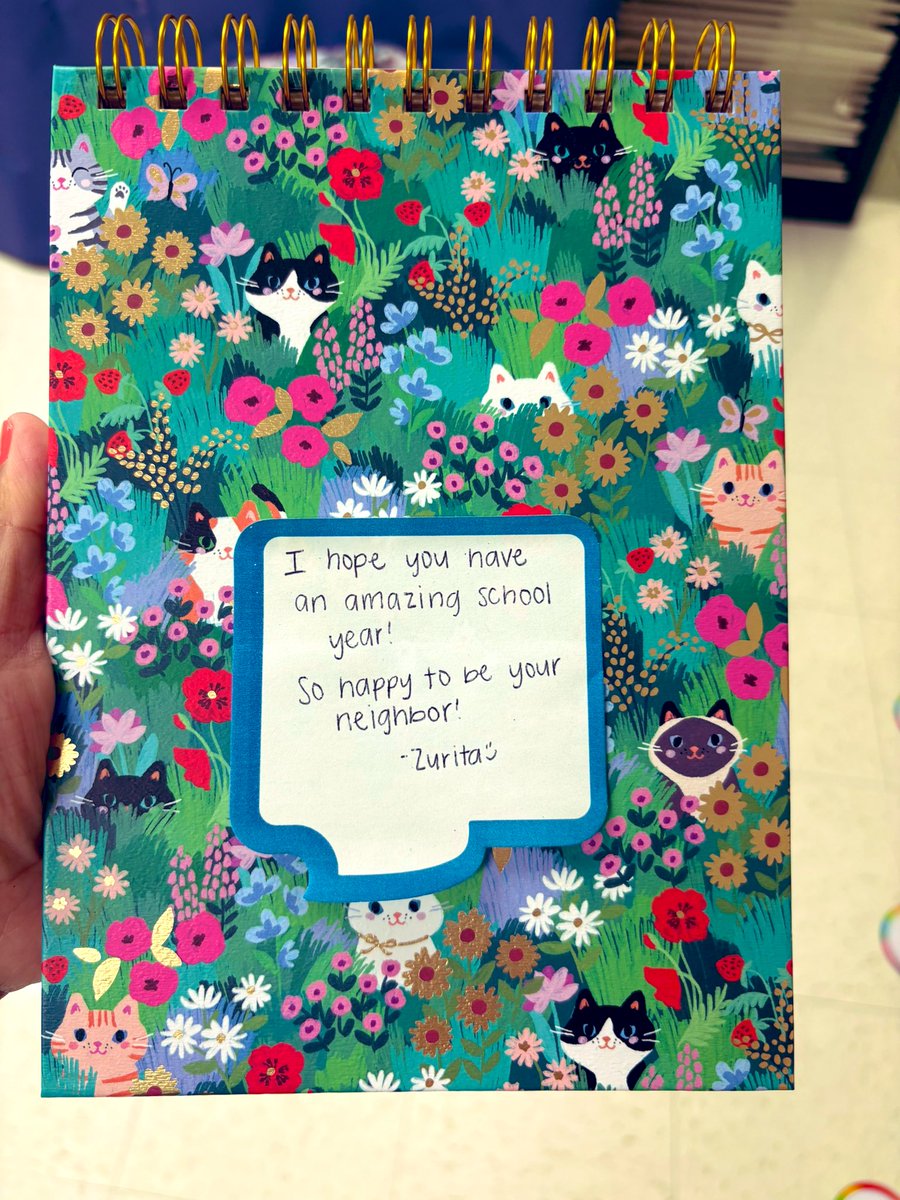 I hope you have
an amazing school
year!
So happy to be your
neighbor!
-Zurita